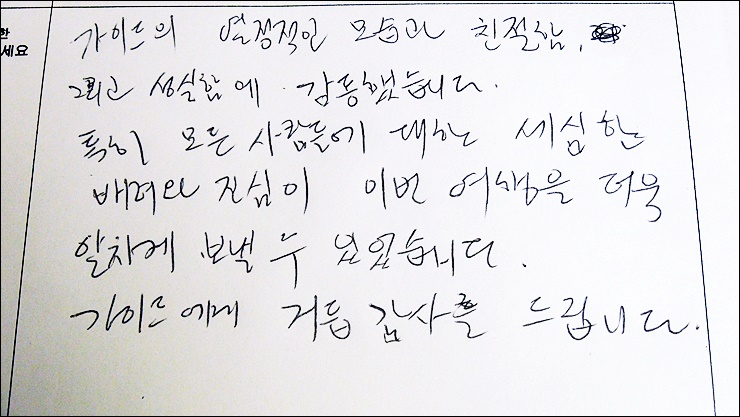 한
세요
가이드의 열정적인 모습과 친절함,
그리고 성실함에 감동했습니다.
특히 모든 사람들에 대한 세심한
배려와 진심이 이번 여행을 더욱
알차게 보낼 수 있었습니다.
가이드에게 거듭 감사를 드립니다.